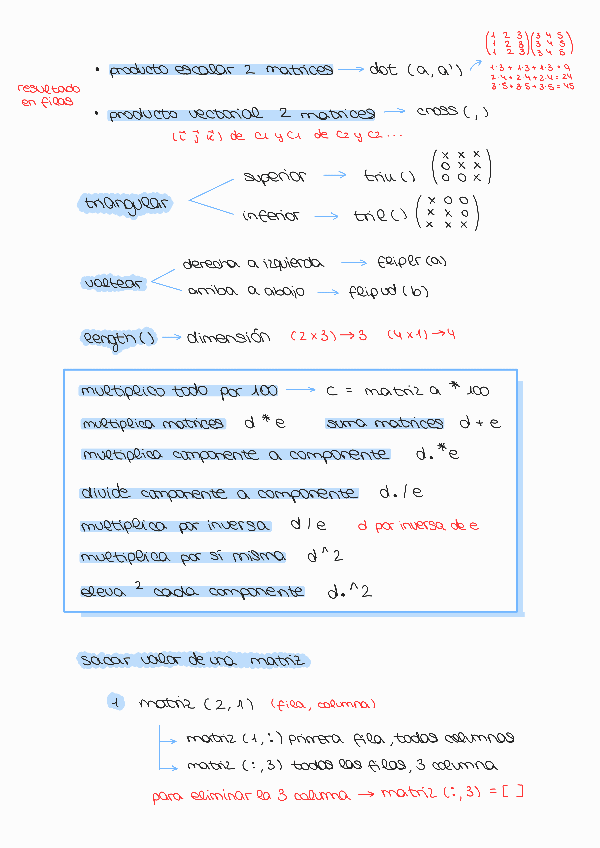 (1 2 3) (3 4 5)
(1 2 3) (3 4 5)
(1 2 3) (3 4 5)
• producto escalar 2 matrices → dot (a, a')
1·3 + 1·3 + 1·3 = 9
2·4 + 2·4 + 2·4 = 24
3·5 + 3·5 + 3·5 = 45
resultado
en filas
• producto vectorial 2 matrices → cross ( , )
(i j k) de C1 y C1 de C2 y C2 ...
triangular
superior → triu ( )
x x x
0 x x
0 0 x
inferior → tril ( )
x 0 0
x x 0
x x x
voltear
derecha a izquierda → fliplr (a)
arriba a abajo → flipud (b)
length ( ) → dimensión (2 x 3) → 3 (4 x 1) → 4
multiplico todo por 100 → c = matriz a * 100
multiplica matrices d * e suma matrices d + e
multiplica componente a componente d.* e
divide componente a componente d. / e
multiplica por inversa d / e d por inversa de e
multiplica por sí misma d ^ 2
eleva ² cada componente d. ^ 2
sacar valor de una matriz
1 matriz (2, 1) (fila, columna)
→ matriz (1, :) primera fila, todas columnas
→ matriz (:, 3) todas las filas, 3 columna
para eliminar la 3 columna → matriz (:, 3) = [ ]